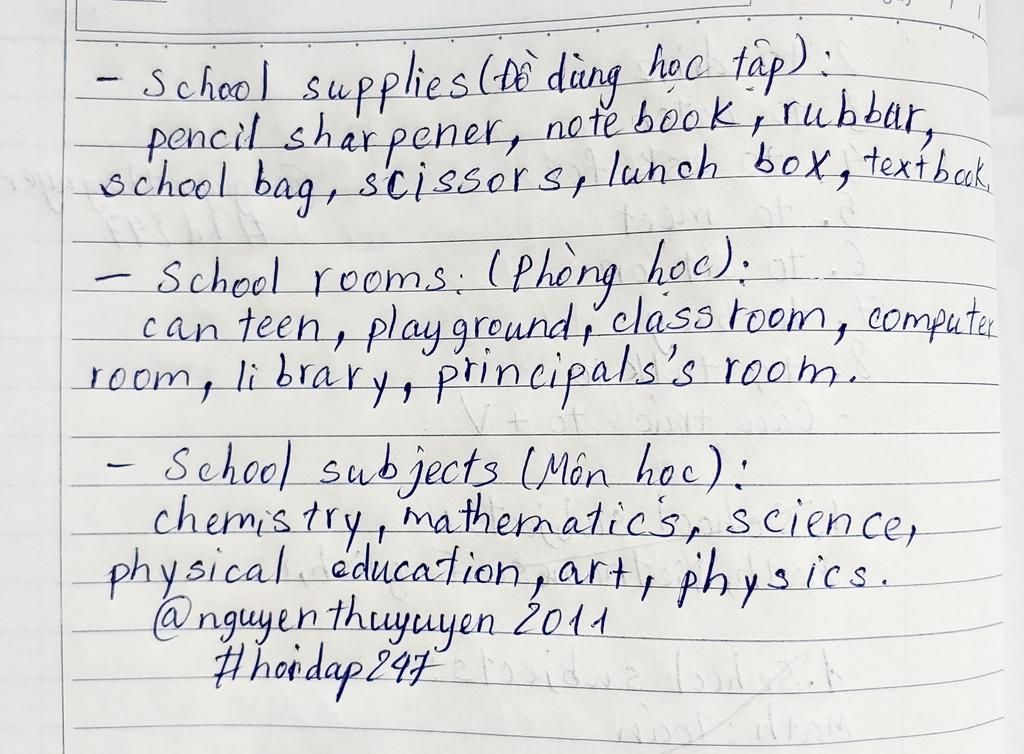 - School supplies (Đồ dùng học tập):
pencil sharpener, note book, rubbar,
school bag, scissors, lunch box, textbook.
- School rooms: (Phòng học):
can teen, play ground, class room, computer
room, li brary, principals's room.
- School subjects (Môn học):
chemistry, mathematics, science,
physical education, art, physics.
@nguyenthuyuyen 2011
#hoidap247